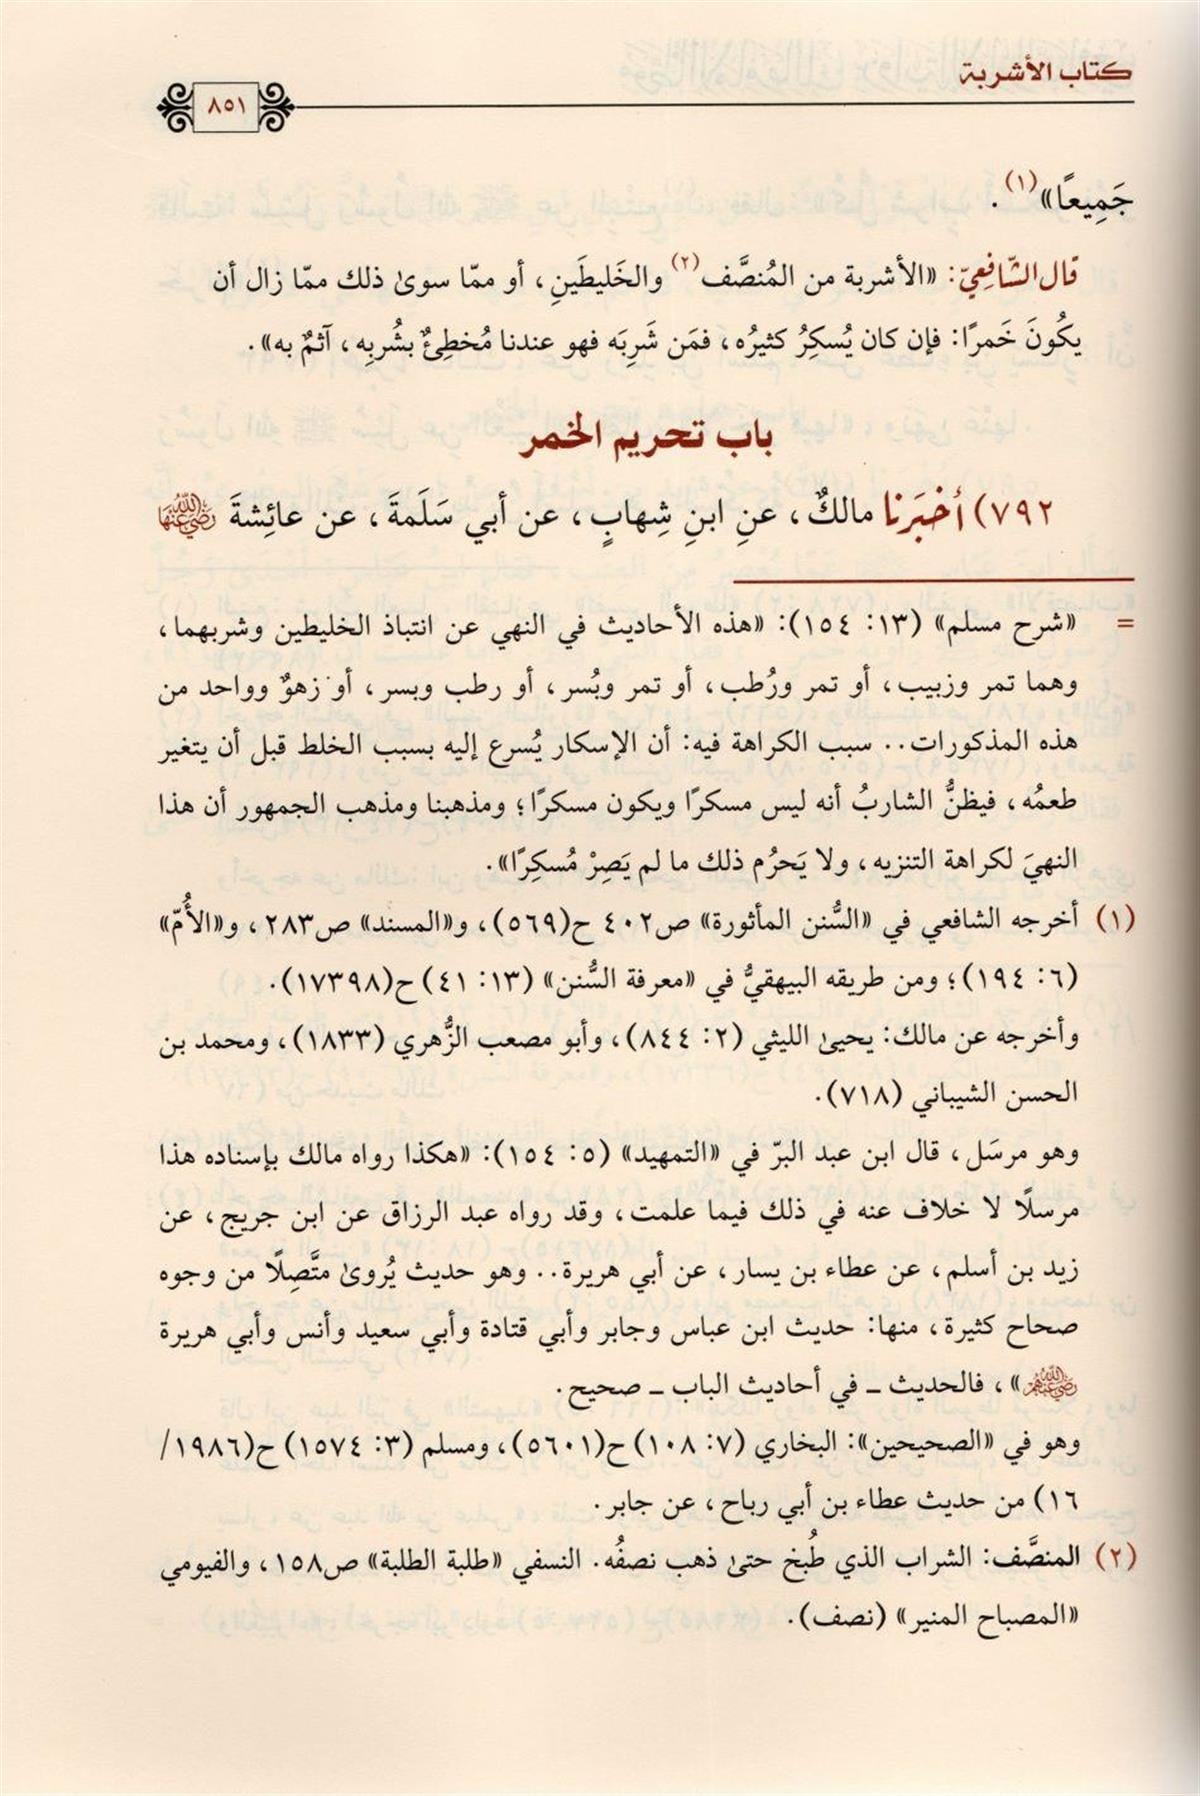 كتاب الأشربة
٨٥١
جَمِيعًا»(١).
قال الشّافِعيّ: «الأشربة من المُنصَّف(٢) والخَليطَينِ، أو ممّا سوىٰ ذلك ممّا زال أن
يكُونَ خَمرًا: فإن كان يُسكِرُ كثيرُه، فمَن شَرِبَه فهو عندنا مُخطِئٌ بشُربِه، آثمٌ به».
باب تحريم الخمر
٧٩٢) أخبَرَنا مالكٌ، عنِ ابنِ شِهابٍ، عن أبي سَلَمةَ، عن عائِشةَ رَضِيَ اللَّهُ عَنْهَا
= «شرح مسلم» (١٣: ١٥٤): «هذه الأحاديث في النهي عن انتباذ الخليطين وشربهما،
وهما تمر وزبيب، أو تمر ورُطب، أو تمر وبُسر، أو رطب وبسر، أو زهوٌ وواحد من
هذه المذكورات.. سبب الكراهة فيه: أن الإسكار يُسرع إليه بسبب الخلط قبل أن يتغير
طعمُه، فيظنُّ الشاربُ أنه ليس مسكرًا ويكون مسكرًا؛ ومذهبنا ومذهب الجمهور أن هذا
النهيَ لكراهة التنزيه، ولا يَحرُم ذلك ما لم يَصِرْ مُسكِرًا».
(١) أخرجه الشافعي في «السُّنن المأثورة» ص٤٠٢ ح(٥٦٩)، و«المسند» ص٢٨٣، و«الأُمّ»
(٦: ١٩٤)؛ ومن طريقه البيهقيُّ في «معرفة السُّنن» (١٣: ٤١) ح(١٧٣٩٨).
وأخرجه عن مالك: يحيىٰ الليثي (٢: ٨٤٤)، وأبو مصعب الزُّهري (١٨٣٣)، ومحمد بن
الحسن الشيباني (٧١٨).
وهو مرسَل، قال ابن عبد البرّ في «التمهيد» (٥: ١٥٤): «هكذا رواه مالك بإسناده هذا
مرسلًا لا خلاف عنه في ذلك فيما علمت، وقد رواه عبد الرزاق عن ابن جريج، عن
زيد بن أسلم، عن عطاء بن يسار، عن أبي هريرة.. وهو حديث يُروىٰ متَّصِلًا من وجوه
صحاح كثيرة، منها: حديث ابن عباس وجابر وأبي قتادة وأبي سعيد وأنس وأبي هريرة
رَضِيَ اللَّهُ عَنْهُمْ»، فالحديث ـ في أحاديث الباب ـ صحيح.
وهو في «الصحيحين»: البخاري (٧: ١٠٨) ح(٥٦٠١)، ومسلم (٣: ١٥٧٤) ح(١٩٨٦/
١٦) من حديث عطاء بن أبي رباح، عن جابر.
(٢) المنصَّف: الشراب الذي طُبخ حتىٰ ذهب نصفُه. النسفي «طلبة الطلبة» ص١٥٨، والفيومي
«المصباح المنير» (نصف).